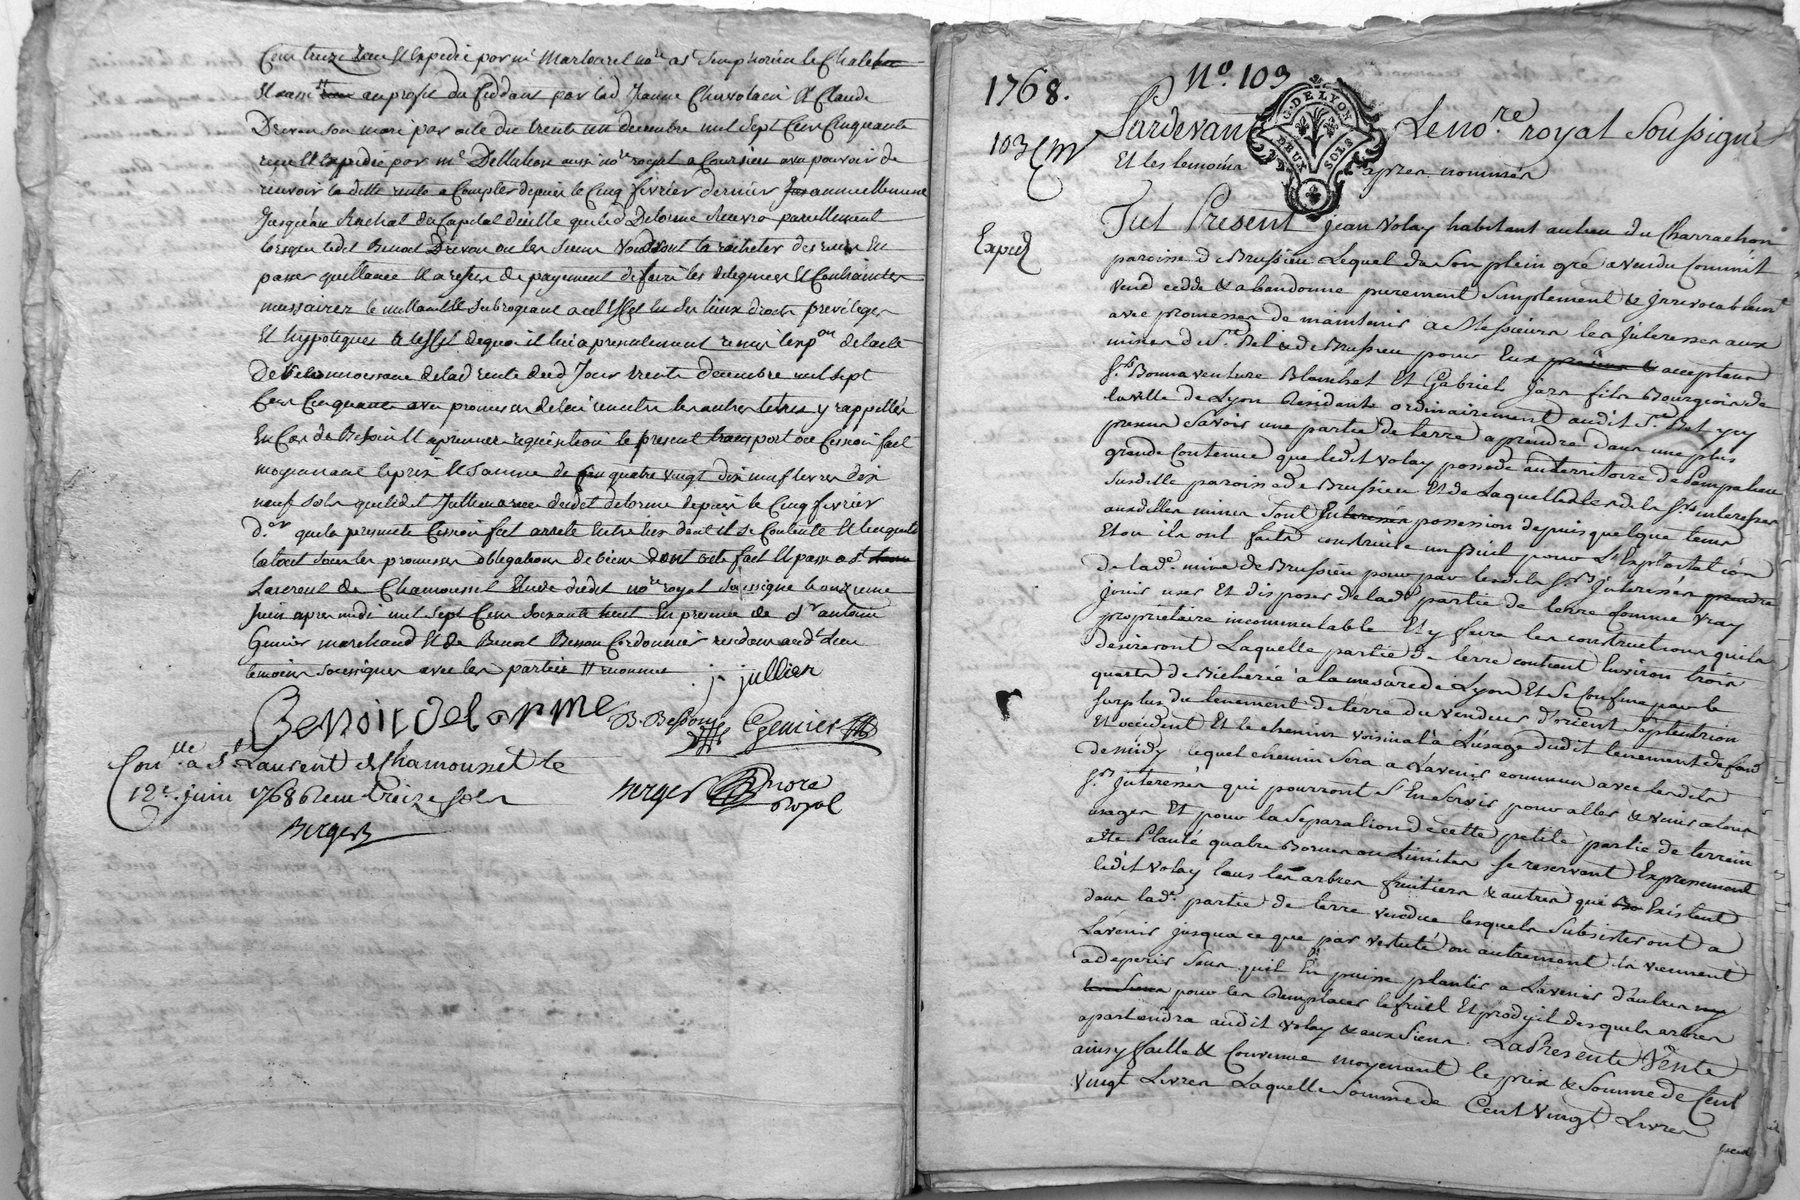 Cent treize Reçu et Expedié par Me Martourel nore a st Simphorien le Chateau
au profit du Ceddant par lad. Jeanne Chavolain et Claude
Drevon son mari par acte du trente un decembre mil sept Cent Cinquante
reçu et expedié par Me aussi nore royal a Coursieu avec pouvoir de
la ditte rente a Compter depuis le Cinq fevrier dernier annuellement
Jusques au Rachat du Capital d'icelle que led Delorme Recevra pareillement
lorsque ledit Benoit Drevon ou les siens voudront la racheter
passer quittance Et a refus de payement de faire les diligences Et Contraintes
necessaires le mettant et subrogeant a cet effet en ses lieux droits privileges
Et hypoteques a l'effet de quoi il lui a presentement remis l'expon de l'acte
de reconnoissance de lad rente dud Jour trente decembre mil sept
Cent Cinquante avec promesse de lui remettre les autres titres y rappellés
En Cas de Besoin Et a premiere requisition le present transport ou Cession fait
moyennant le prix Et somme de quatre vingt dix neuf livres dix
neuf sols que ledit Jullien a reçu dudit delorme depuis le Cinq fevrier
der que la presente Cession fut arretée entre eux dont il se Contente Et l'en quitte
le tout sous les promesses obligations de biens dont acte fait Et passé a st
Laurent de Chamousset Etude dudit nore royal soussigné le onzieme
Juin apres midi mil sept Cent soixante huit En presence de sr antoine
Genier marchand Et de Benoit Besson Cordonnier residens aud. Lieu
temoins soussignes avec les parties
j. jullien
Benoit delorme B. Besson Genier
Conlle a St Laurent de Chamousset le
12e. juin 1768 Reçu treize sols
Berger
Berger nore royal
1768. No. 103
G. DE LYON
DEUX SOLS
103
Pardevant Le nore royal soussigné
Et les temoins apres nommés
Expед
Fut Present jean Volay habitant au lieu du Charrachon
paroisse de Brussieu Lequel de son plein gré a vendu Comme il
vend cedde & abandonne purement simplement & Irrevocablemt
avec promesses de maintenir a Messieurs les Interessés aux
mines de st. Bel & de Brussieu pour Eux acceptans
srs Bonnaventure Blanchet Et Gabriel Jars fils Bourgeois de
la ville de Lyon Residants ordinairement audit st. Bel y cy
presens Savoir une partie de terre a prendre dans une plus
grande Contenue que ledit Volay possede au territoire de
susditte paroisse de Brussieu Et de Laquelle les dits srs interessés
auxdittes mines sont possession depuis quelque tems
Et ou ils ont faits construire un puit pour L'Exploitation
de lade. mine de Brussieu pour par les dits srs Interessés
jouir user Et disposer de lade partie de terre Comme vray
proprietaire incommutable Et y faire les constructions qu'ils
desireront Laquelle partie de terre contient Environ trois
quarts de Bicherée à la mesure de Lyon Et se Confine par le
surplus du tenement de terre du Vendeur d'orient Septentrion
Et occident Et le chemin voisinal à L'usage dudit tenement de fond
de midy lequel chemin sera a l'avenir commun avec lesdits
srs Interessés qui pourront s'En servir pour aller & venir a leurs
usages Et pour la separation de cette petite partie de terrein
a été Planté quatre Bornes ou Limites se reservant Expressement
ledit Volay tous les arbres fruitiers & autres qui Existent
dans lade partie de terre vendue lesquels subsisteront a
L'avenir jusqua ce que par vetusté ou autrement ils viennent
a deperir sans quil En puisse planter a L'avenir d'autres
pour les Remplacer le fruit Et produit desquels arbres
apartiendra audit Volay & aux siens. La Presente Vente
ainsy faitte & Convenue moyenant le prix & somme de Cent
Vingt Livres Laquelle somme de Cent Vingt Livres